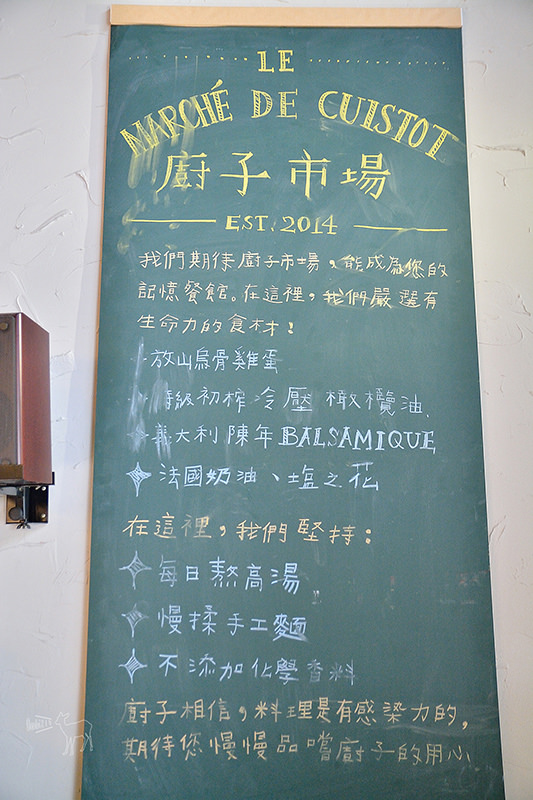 LE
MARCHÉ DE CUISTOT
廚子市場
EST. 2014
我們期待廚子市場，能成為您的
記憶餐館。在這裡，我們嚴選有
生命力的食材！
放山烏骨雞蛋
特級初榨冷壓橄欖油、
義大利陳年BALSAMIQUE
法國奶油、塩之花
在這裡，我們堅持：
每日熬高湯
慢揉手工麵
不添加化學香料
廚子相信，料理是有感染力的，
期待您慢慢品嚐廚子的用心